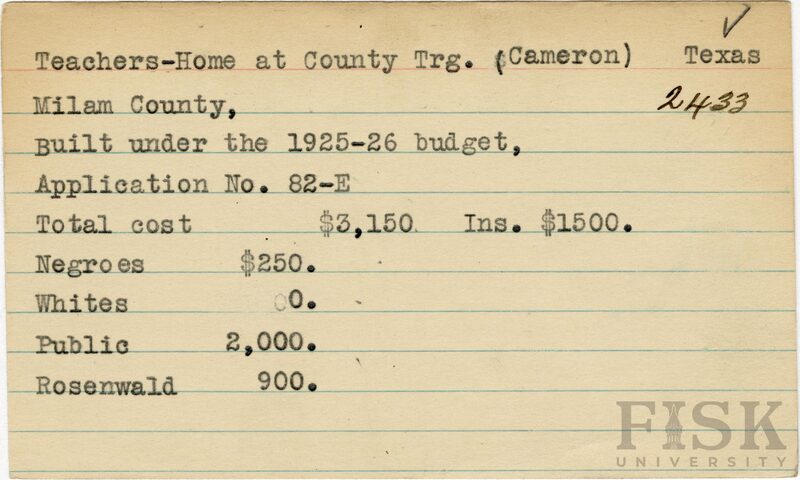 Teachers-Home at County Trg. (Cameron) Texas
Milam County, 2433
Built under the 1925-26 budget,
Application No. 82-E
Total cost $3,150 Ins. $1500.
Negroes $250.
Whites 00.
Public 2,000.
Rosenwald 900.
FISK
UNIVERSITY